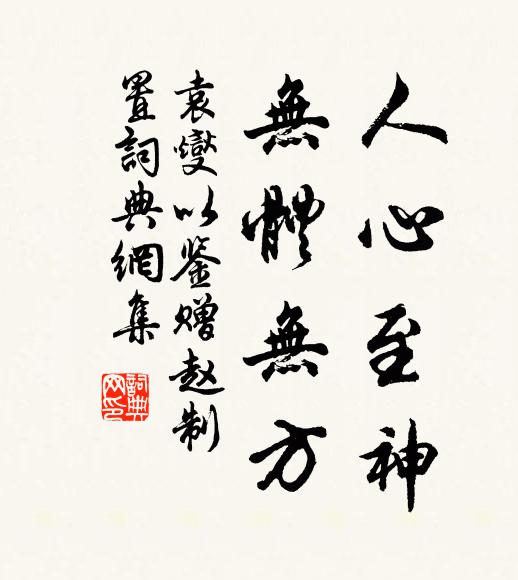 人心至神
無體無方
袁燮以鉴赠赵制
置詞典網集
詞典
网印